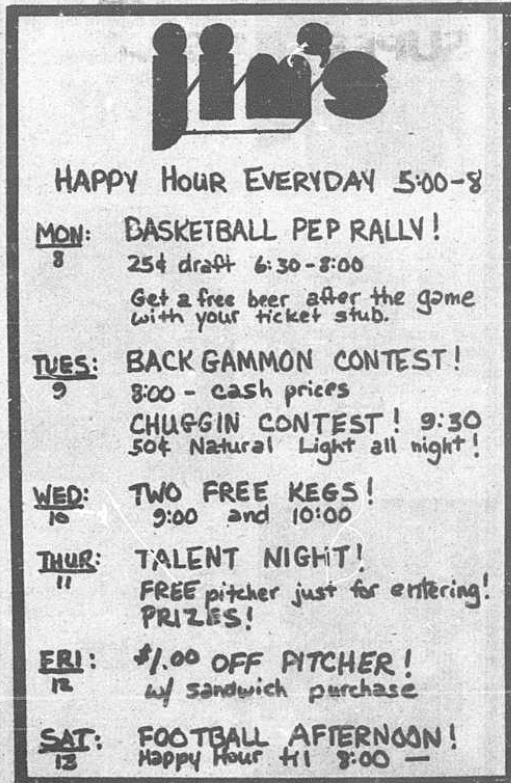 jim's
HAPPY HOUR EVERYDAY 5:00-8
MON: BASKETBALL PEP RALLY!
8 25¢ draft 6:30-8:00
Get a free beer after the game
with your ticket stub.
TUES: BACKGAMMON CONTEST!
9 8:00 - cash prices
CHUGGIN CONTEST! 9:30
50¢ Natural Light all night!
WED: TWO FREE KEGS!
10 9:00 and 10:00
THUR: TALENT NIGHT!
11 FREE pitcher just for entering!
PRIZES!
FRI: $1.00 OFF PITCHER!
12 w/ sandwich purchase
SAT: FOOTBALL AFTERNOON!
13 Happy Hour til 8:00 —